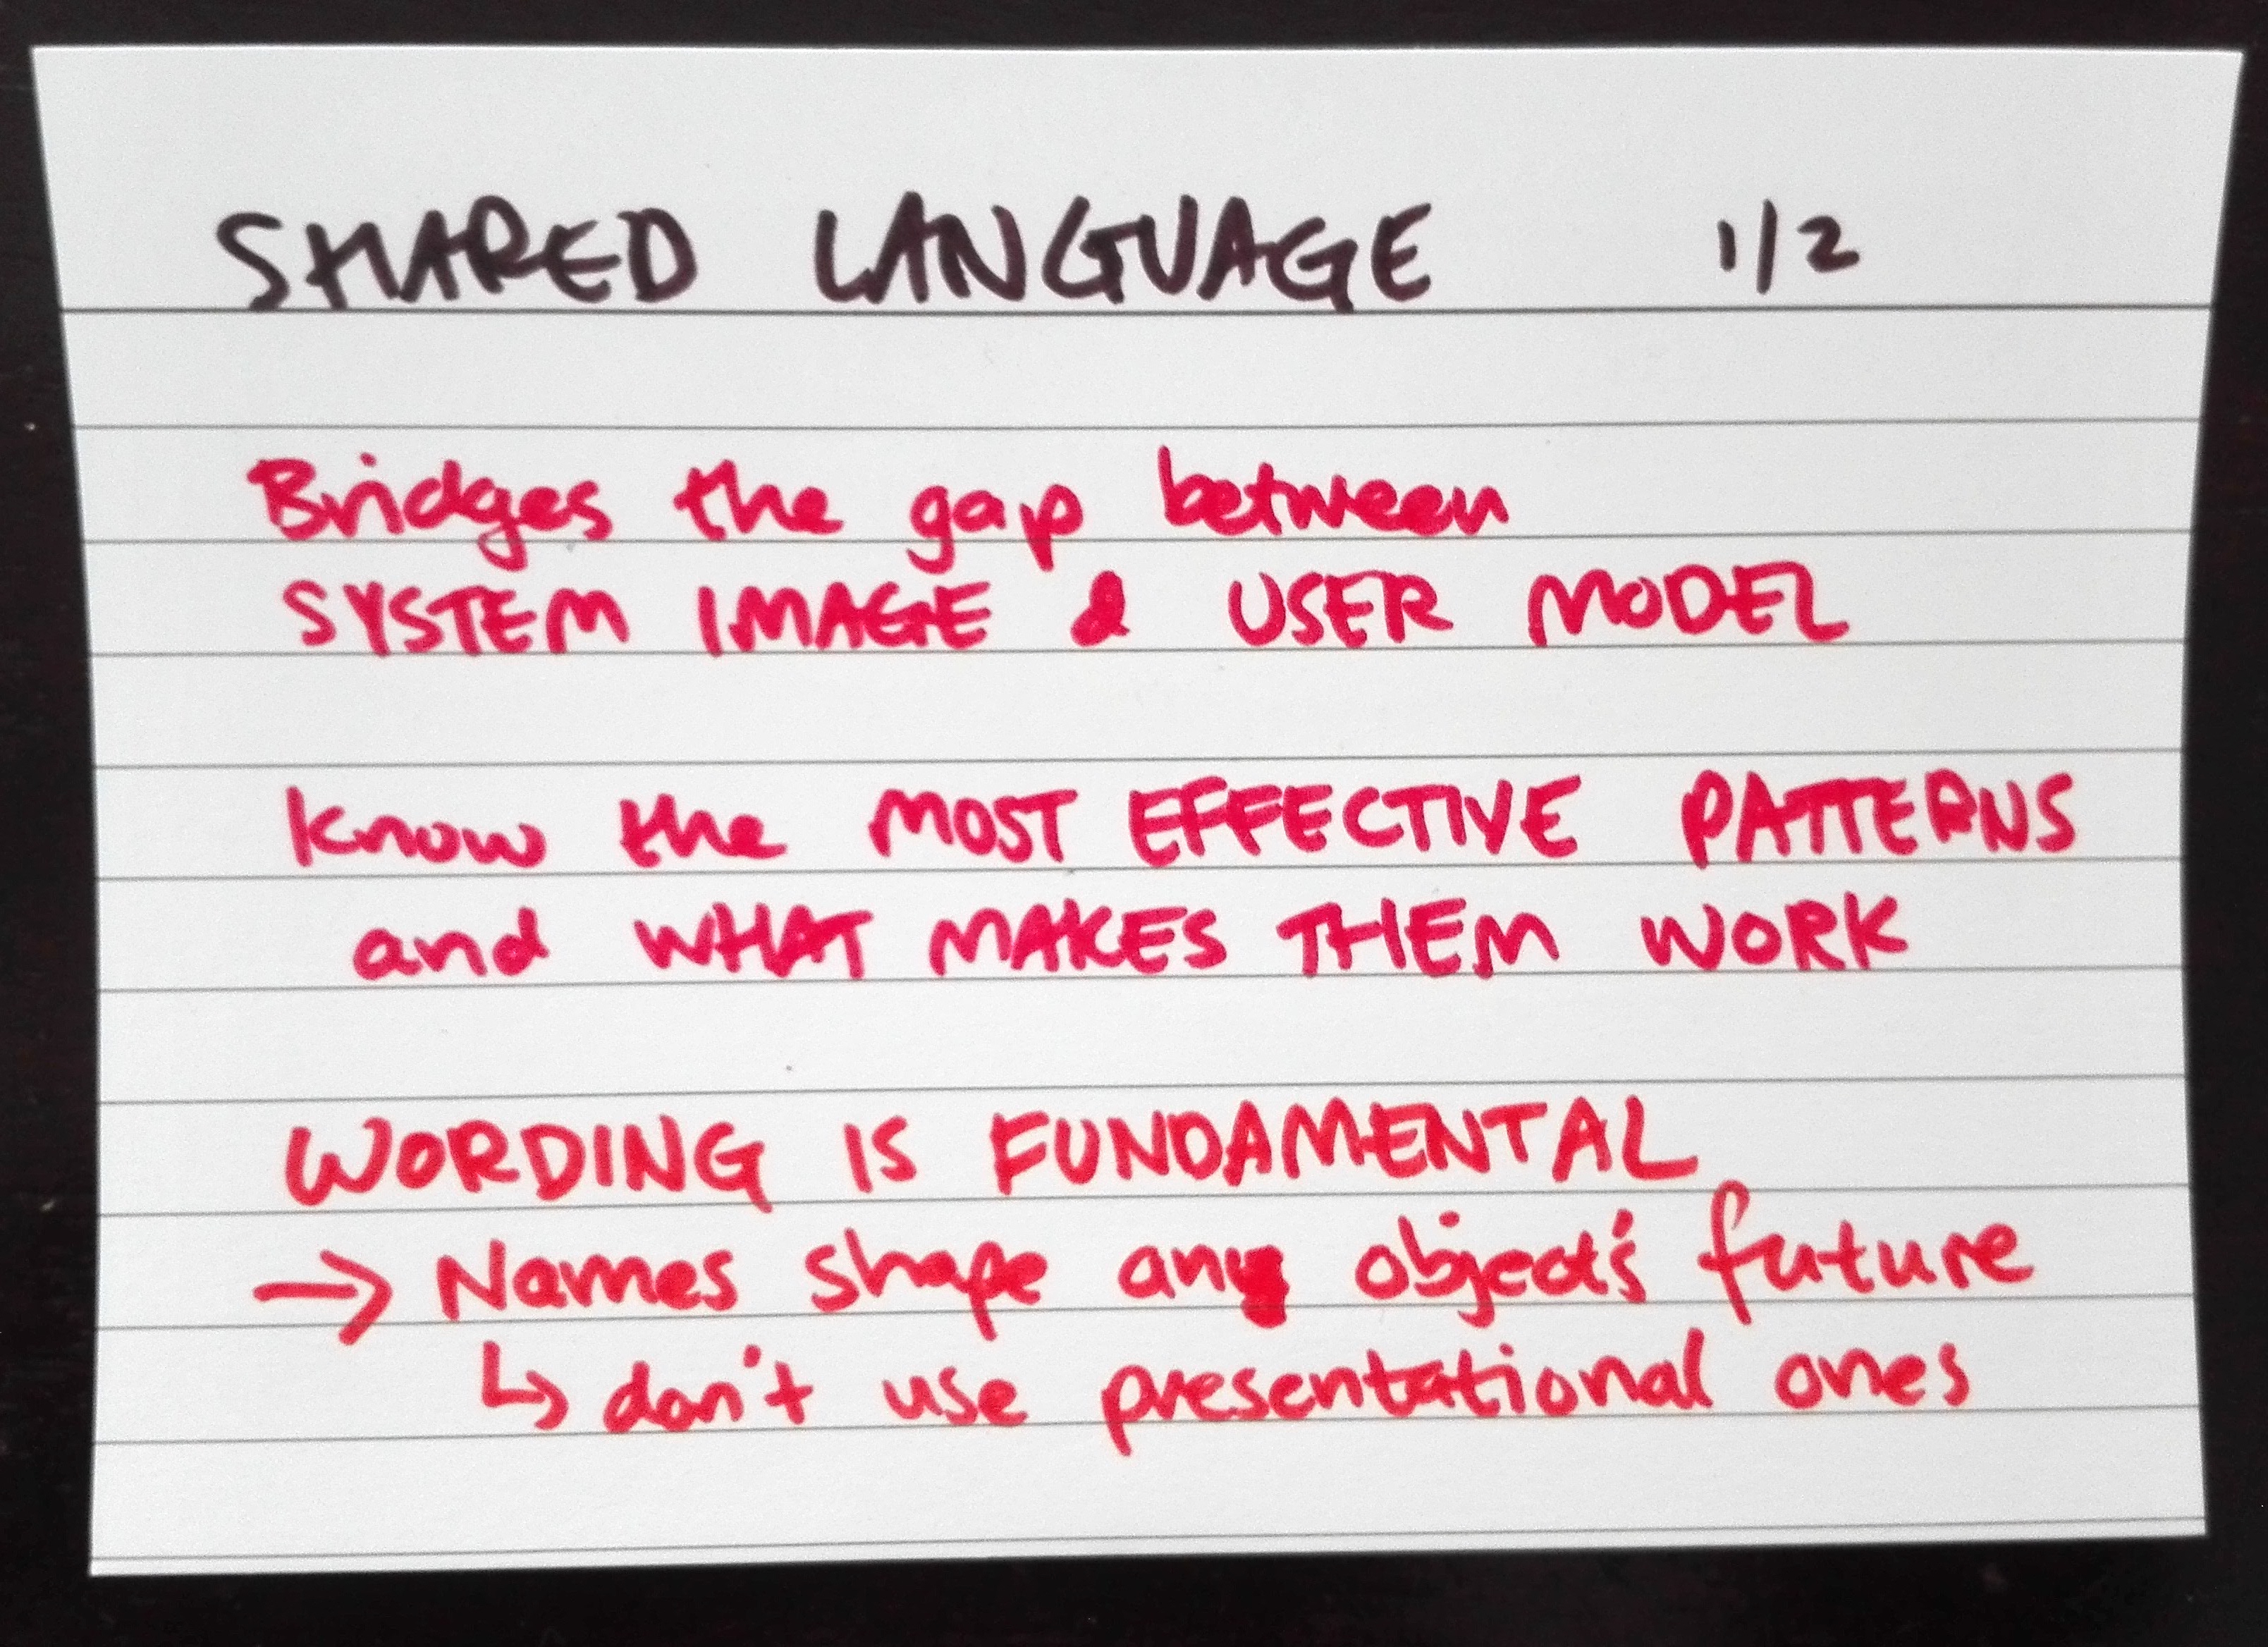 SHARED LANGUAGE 1/2
Bridges the gap between
SYSTEM IMAGE & USER MODEL
Know the MOST EFFECTIVE PATTERNS
and WHAT MAKES THEM WORK
WORDING IS FUNDAMENTAL
→ Names shape any object's future
↳ don't use presentational ones